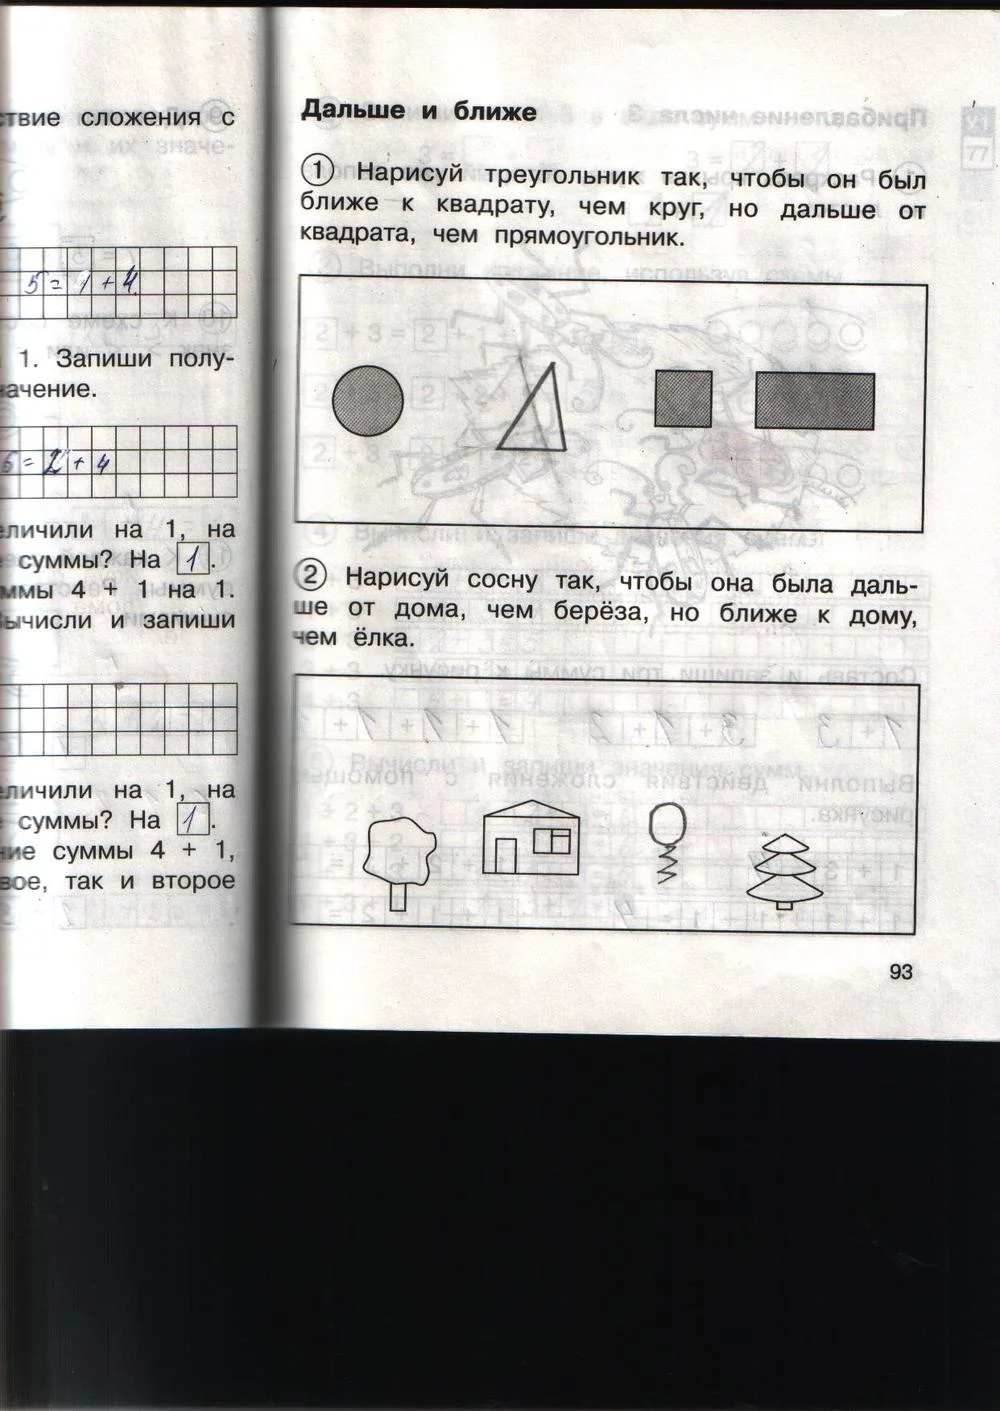 твие сложения с
5 = 1 + 4
1. Запиши полу-
ачение.
6 = 2 + 4
еличили на 1, на
суммы? На 1.
ммы 4 + 1 на 1.
ычисли и запиши
еличили на 1, на
суммы? На 1.
ние суммы 4 + 1,
вое, так и второе
Дальше и ближе
1 Нарисуй треугольник так, чтобы он был
ближе к квадрату, чем круг, но дальше от
квадрата, чем прямоугольник.
2 Нарисуй сосну так, чтобы она была даль-
ше от дома, чем берёза, но ближе к дому,
чем ёлка.
93